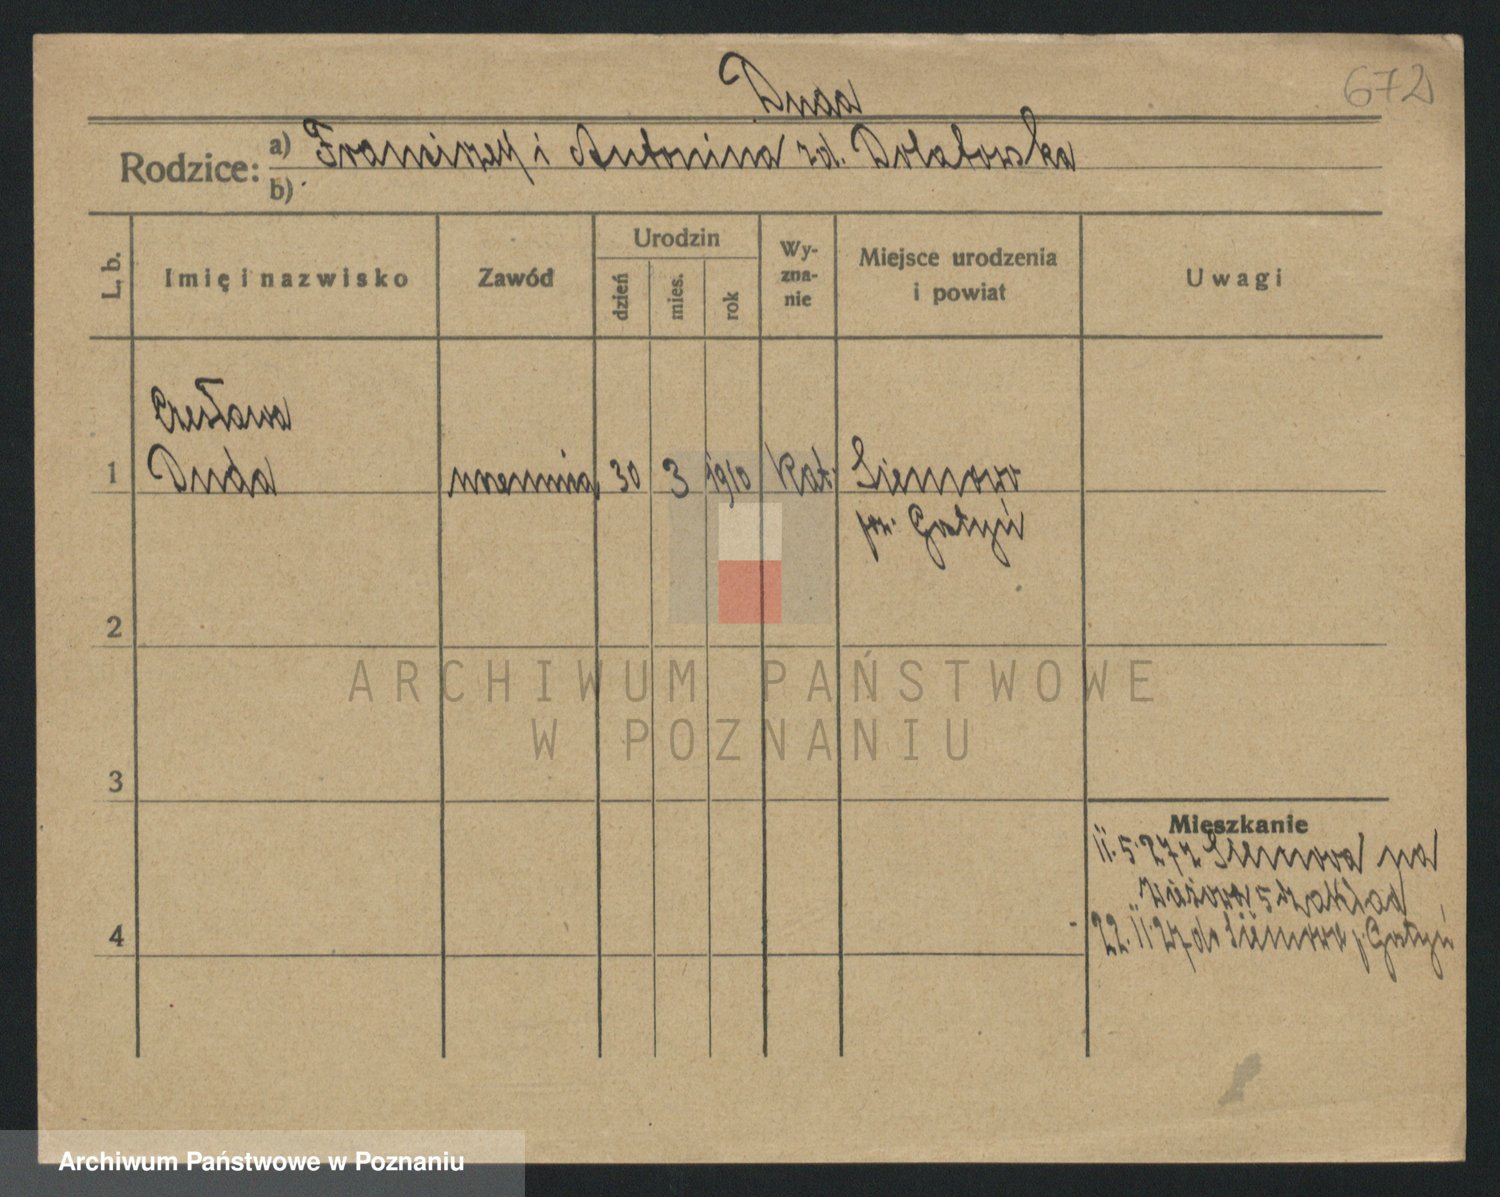 Duda
672
Rodzice: a) Franciszek i Antonina zd. Dolatowska
b)
L. b.
Imię i nazwisko
Zawód
Urodzin
dzień
mies.
rok
Wy-
zna-
nie
Miejsce urodzenia
i powiat
Uwagi
Czesława
1 Duda uczennica 30 3 1910 kat. Siemowo
pow. Gostyń
2
ARCHIWUM PAŃSTWOWE
W POZNANIU
3
Mieszkanie
11.5.27 z Siemowa na
5 zakład
4
22.11.27 do Siemowo p. Gostyń
Archiwum Państwowe w Poznaniu